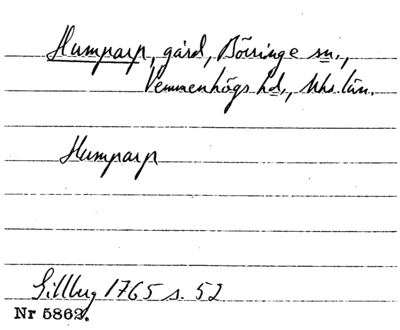 Humparp, gård, Börringe sn.,
Vemmenhögs hd., Mhs. län.
Humparp
Gillberg 1765 s. 52
Nr 5862.